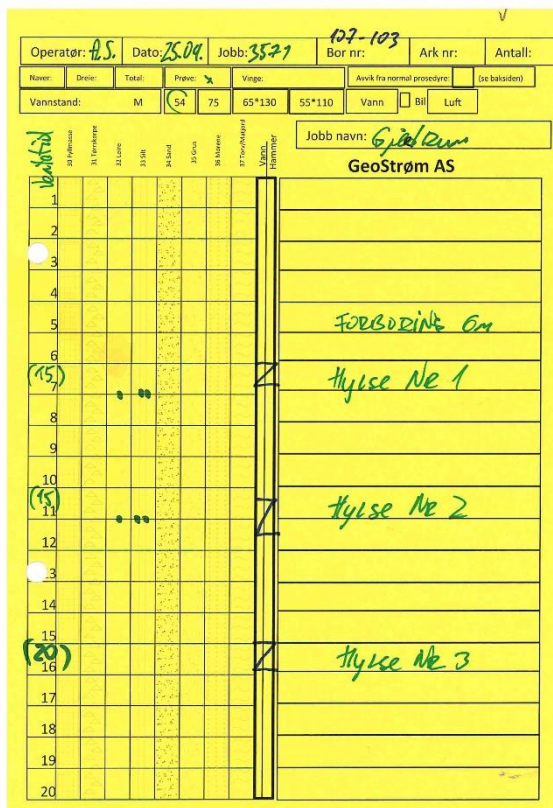 Operatør: A.S. Dato: 25.09. Jobb: 3571 Bor nr: 107-103 Ark nr: Antall:
Naver: Dreie: Total: Prøve: x Vinge: Avvik fra normal prosedyre: (se baksiden)
Vannstand: M 54 75 65*130 55*110 Vann Bil Luft
Ventetid 30 Fyllmasse 31 Tørrskorpe 32 Leire 33 Silt 34 Sand 35 Grus 36 Morene 37 Torv/Matjord Vann Hammer
Jobb navn: Gjerdrum
GeoStrøm AS
1
2
3
4
5 FORBORING 6m
6
(15) Hylse Nr 1
7
8
9
10
(15) Hylse Nr 2
11
12
13
14
15
(20) Hylse Nr 3
16
17
18
19
20